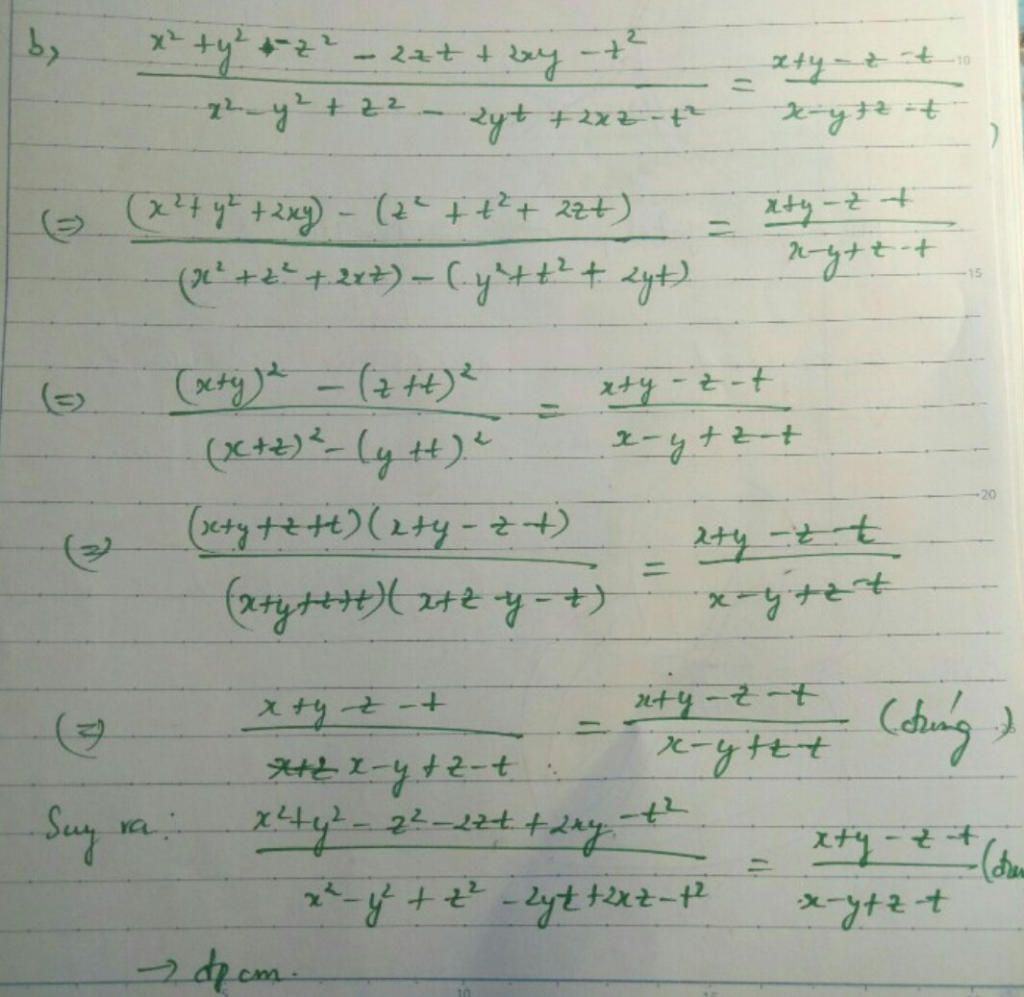 b, (x² + y² - z² - 2zt + 2xy - t²) / (x² - y² + z² - 2yt + 2xz - t²) = (x+y-z-t) / (x-y+z-t)
(=) ((x² + y² + 2xy) - (z² + t² + 2zt)) / ((x² + z² + 2xz) - (y² + t² + 2yt)) = (x+y-z-t) / (x-y+z-t)
(=) ((x+y)² - (z+t)²) / ((x+z)² - (y+t)²) = (x+y-z-t) / (x-y+z-t)
(=) ((x+y+z+t)(x+y-z-t)) / ((x+y+z+t)(x+z-y-t)) = (x+y-z-t) / (x-y+z-t)
(=) (x+y-z-t) / (x-y+z-t) = (x+y-z-t) / (x-y+z-t) (đúng)
Suy ra: (x² + y² - z² - 2zt + 2xy - t²) / (x² - y² + z² - 2yt + 2xz - t²) = (x+y-z-t) / (x-y+z-t)
→ đpcm.